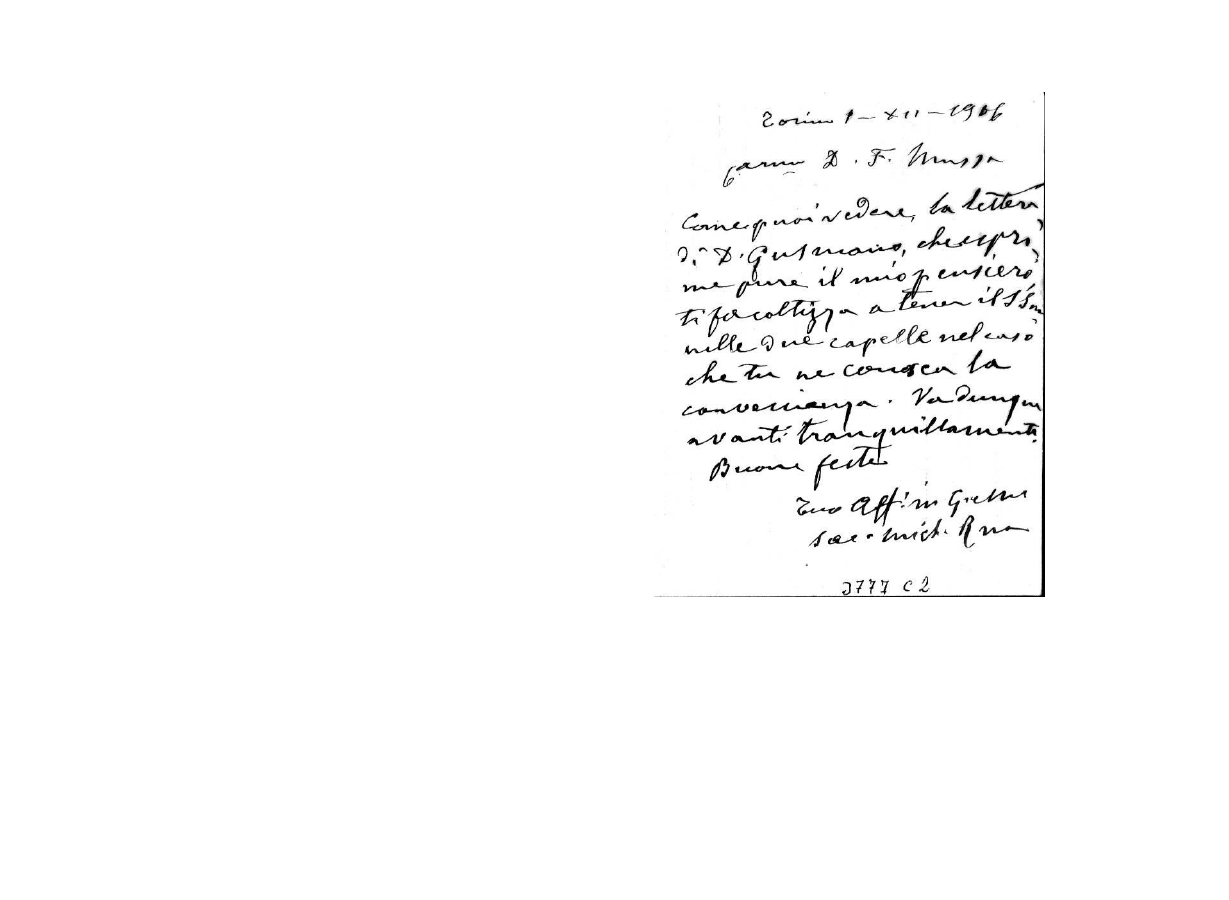 Torino 1-XII-1906
Carmo D. F. Mussa
Come puoi vedere, la lettera
di D. Gusmano, che espri
me pure il mio pensiero
ti facoltizza a tener il SSmo
nelle due capelle nel caso
che tu ne conosca la
convenienza. Va dunque
avanti tranquillamente.
Buone feste
Tuo Aff.mo in G. e M.
Sac. Mich. Rua
3777 C 2